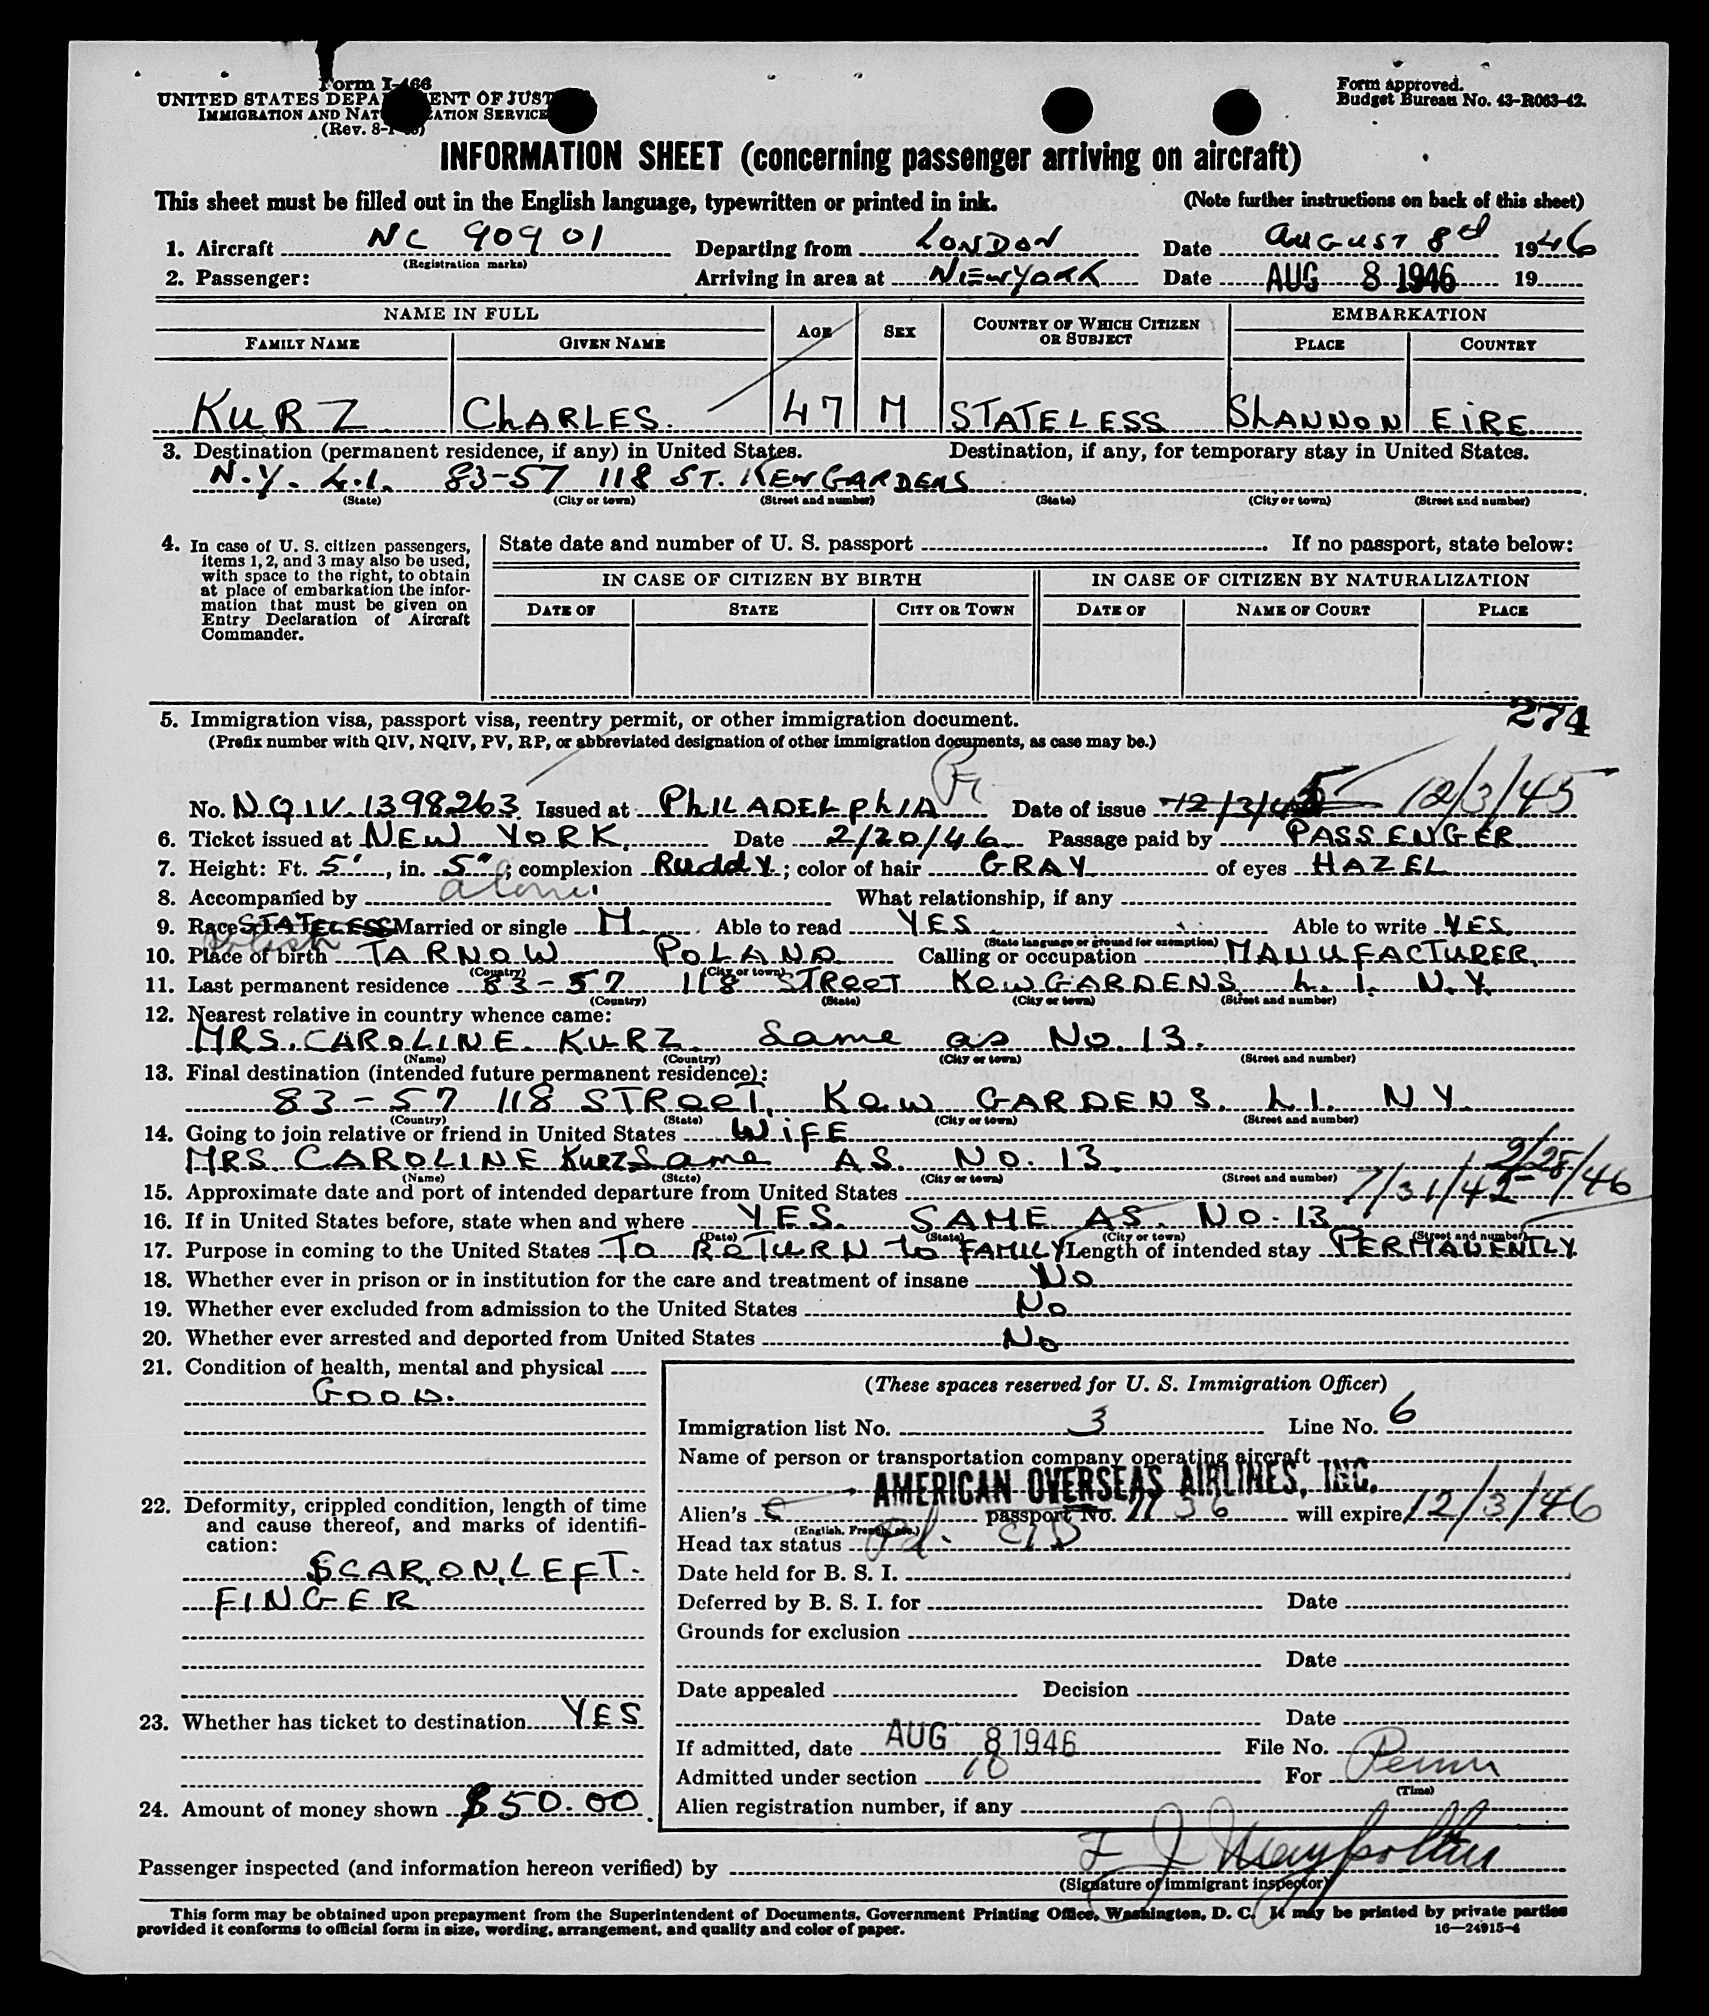 Form I-466
UNITED STATES DEPARTMENT OF JUSTICE
IMMIGRATION AND NATURALIZATION SERVICE
(Rev. 8-1-)
Form approved.
Budget Bureau No. 43-R063-42.
INFORMATION SHEET (concerning passenger arriving on aircraft)
This sheet must be filled out in the English language, typewritten or printed in ink. (Note further instructions on back of this sheet)
1. Aircraft NC 90901 Departing from LONDON Date AUGUST 8d 1946
(Registration marks)
2. Passenger: Arriving in area at NEW YORK Date AUG 8 1946 19
NAME IN FULL EMBARKATION
FAMILY NAME GIVEN NAME AGE SEX COUNTRY OF WHICH CITIZEN OR SUBJECT PLACE COUNTRY
KURZ CHARLES. 47 M STATELESS SHANNON EIRE
3. Destination (permanent residence, if any) in United States. Destination, if any, for temporary stay in United States.
N.Y. L.I. 83-57 118 ST. KEW GARDENS
(State) (City or town) (Street and number) (State) (City or town) (Street and number)
4. In case of U. S. citizen passengers, items 1, 2, and 3 may also be used, with space to the right, to obtain at place of embarkation the information that must be given on Entry Declaration of Aircraft Commander.
State date and number of U. S. passport . If no passport, state below:
IN CASE OF CITIZEN BY BIRTH IN CASE OF CITIZEN BY NATURALIZATION
DATE OF STATE CITY OR TOWN DATE OF NAME OF COURT PLACE
274
5. Immigration visa, passport visa, reentry permit, or other immigration document.
(Prefix number with QIV, NQIV, PV, RP, or abbreviated designation of other immigration documents, as case may be.)
No. NQIV. 1398263 Issued at PHILADELPHIA Date of issue 12/3/45 12/3/45
6. Ticket issued at NEW YORK. Date 2/20/46 Passage paid by PASSENGER
7. Height: Ft. 5', in. 5"; complexion RUDDY; color of hair GRAY of eyes HAZEL
8. Accompanied by alone What relationship, if any
9. Race STATELESS Married or single M Able to read YES Able to write YES
Polish (State language or ground for exemption)
10. Place of birth TARNOW POLAND Calling or occupation MANUFACTURER
(Country) (City or town)
11. Last permanent residence 83-57 118 STREET KEW GARDENS L.I. N.Y.
(Country) (State) (City or town) (Street and number)
12. Nearest relative in country whence came:
MRS. CAROLINE KURZ Same as No 13.
(Name) (Country) (City or town) (Street and number)
13. Final destination (intended future permanent residence):
83-57 118 STREET, KEW GARDENS. L.I. N.Y.
(Country) (State) (City or town) (Street and number)
14. Going to join relative or friend in United States WIFE
MRS. CAROLINE KURZ Same AS. NO. 13.
(Name) (State) (City or town) (Street and number)
15. Approximate date and port of intended departure from United States 7/31/42 - 2/28/46
16. If in United States before, state when and where YES. SAME AS. NO. 13
(Date) (State) (City or town) (Street and number)
17. Purpose in coming to the United States TO RETURN to FAMILY Length of intended stay PERMANENTLY
18. Whether ever in prison or in institution for the care and treatment of insane No
19. Whether ever excluded from admission to the United States No
20. Whether ever arrested and deported from United States No
21. Condition of health, mental and physical
GOOD.
22. Deformity, crippled condition, length of time and cause thereof, and marks of identification:
SCAR ON LEFT.
FINGER
23. Whether has ticket to destination YES
24. Amount of money shown $50.00
(These spaces reserved for U. S. Immigration Officer)
Immigration list No. 3 Line No. 6
Name of person or transportation company operating aircraft
AMERICAN OVERSEAS AIRLINES, INC.
Alien's passport No. 1136 will expire 12/3/46
(English, French, etc.)
Head tax status Pd.
Date held for B. S. I.
Deferred by B. S. I. for Date
Grounds for exclusion
Date
Date appealed Decision
Date
If admitted, date AUG 8 1946 File No.
Admitted under section 10 For Perm
(Time)
Alien registration number, if any
Passenger inspected (and information hereon verified) by
(Signature of immigrant inspector)
This form may be obtained upon prepayment from the Superintendent of Documents, Government Printing Office, Washington, D. C. It may be printed by private parties
provided it conforms to official form in size, wording, arrangement, and quality and color of paper. 16—24915-4